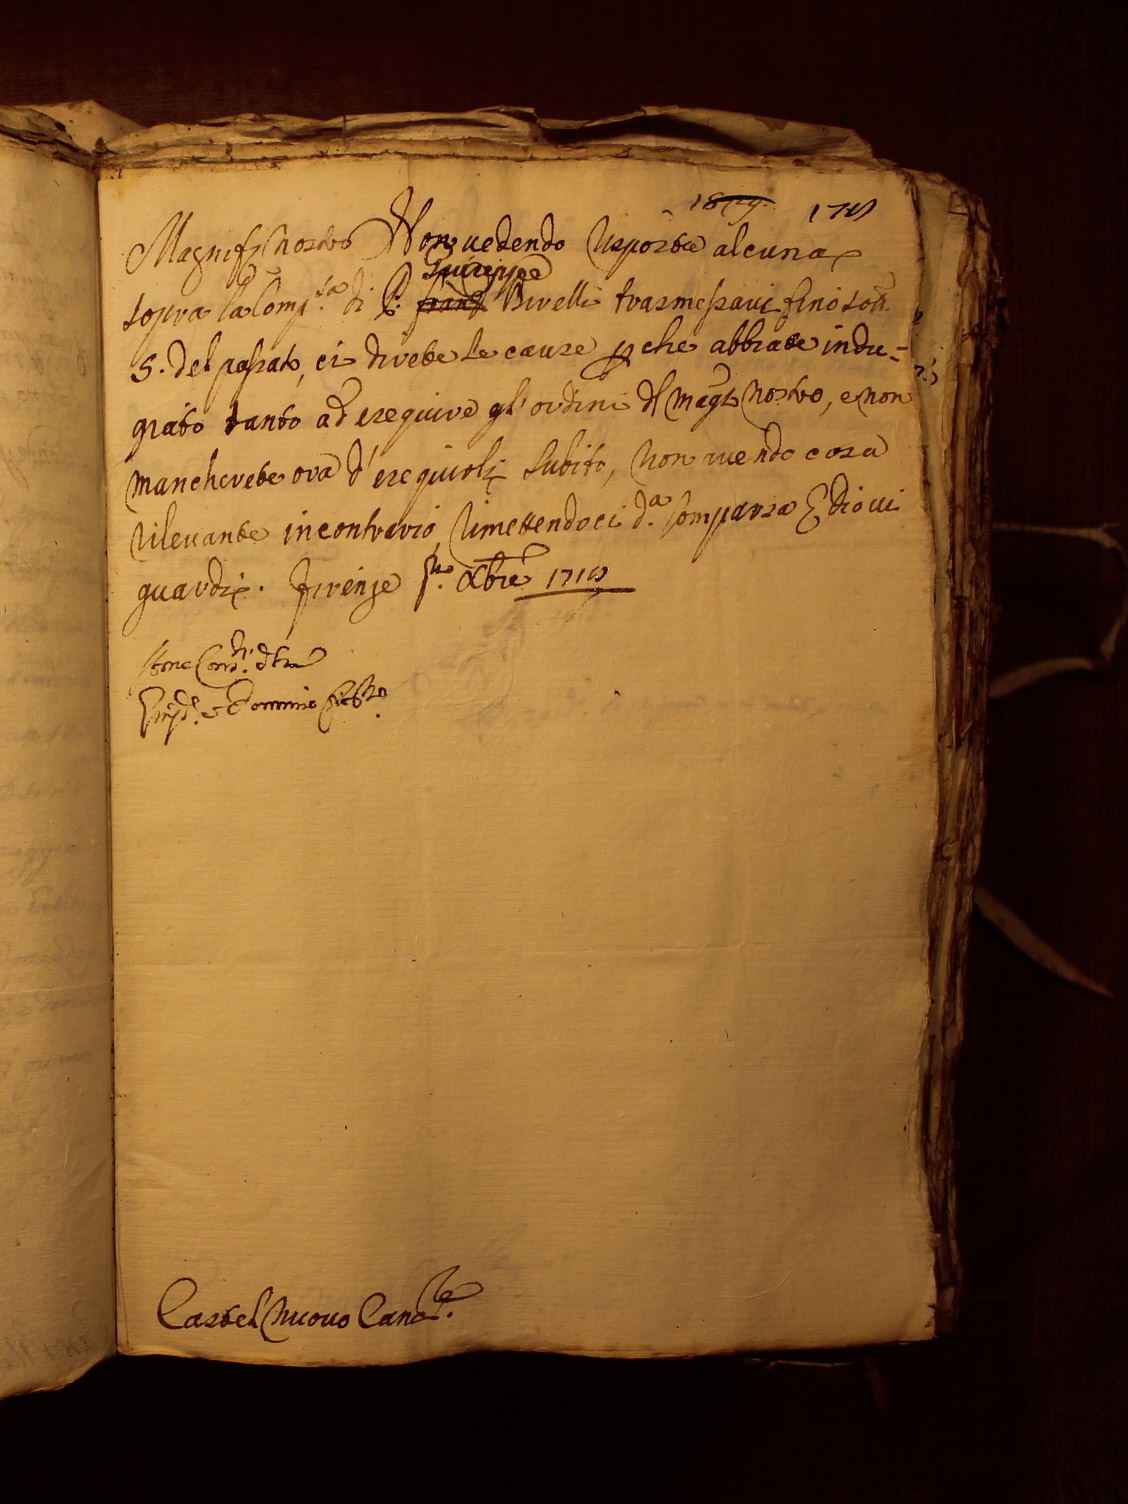 1719
Magnif.co nostro Non vedendo risposta alcuna
Giuseppe
sopra la Comp.sa di P. Birelli trasmessavi fino sott.
5. del passato, ci direte le cause p che abbiate indu=
giato tanto ad esequire gl'ordini del mag.to nostro, e non
mancherete ora d'esequirli subito, non avendo cosa
rilevante in contrario, rimettendoci d.a Comparsa E Dio vi
guardi. Firenze p.mo Xbre 1719
Castel Nuovo Canc.re